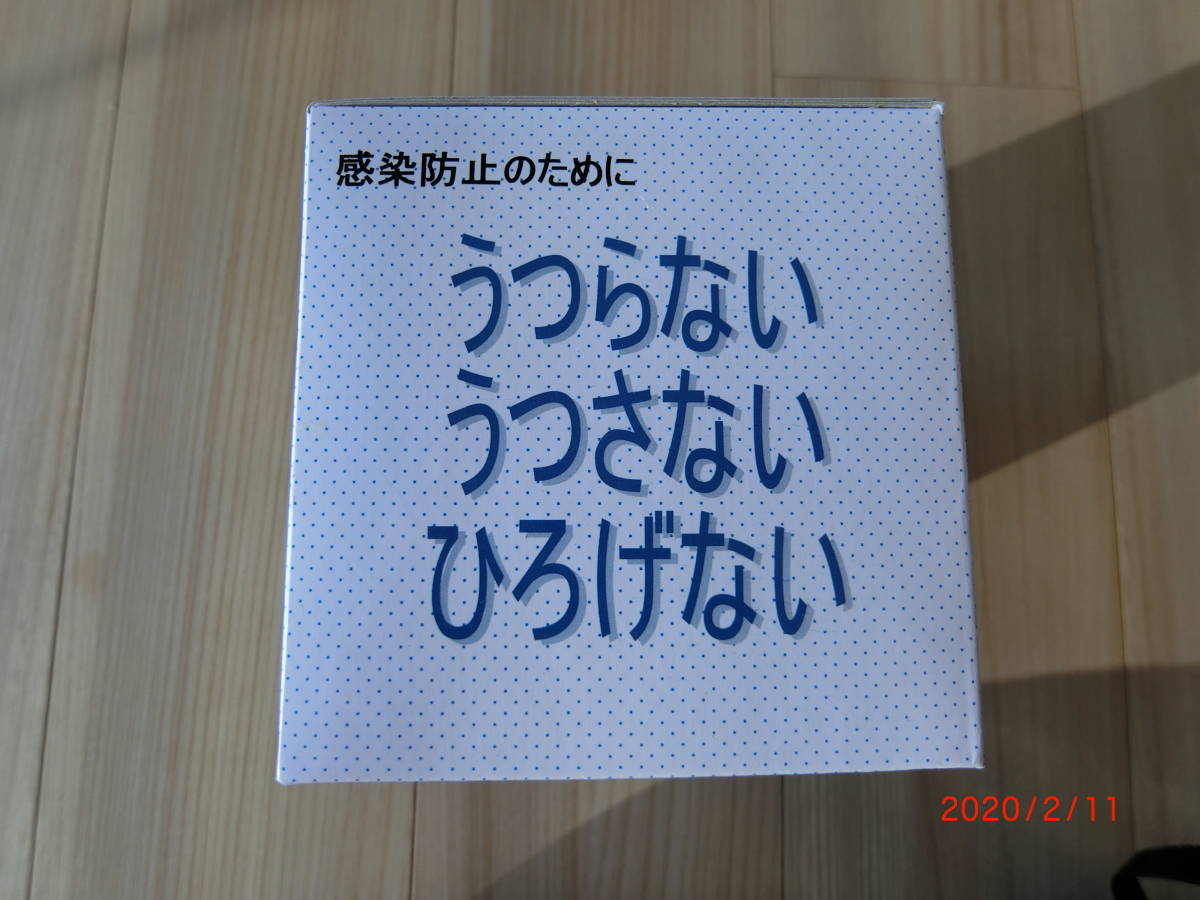 感染防止のために
うつらない
うつさない
ひろげない
2020/2/11